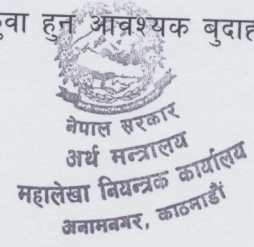 हुन आवश्यक
नेपाल सरकार
अर्थ मन्त्रालय
महालेखा नियन्त्रक कार्यालय
अनामनगर, काठमाडौं